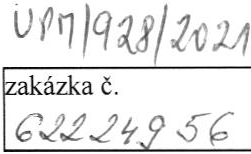 UPM/928/2021
zakázka č.
62224956